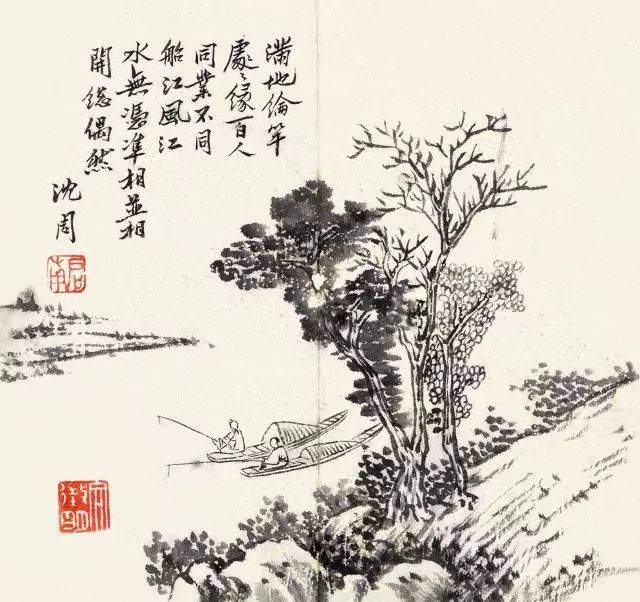 滿地綸竿
處〻緣百人
同業不同
船江風江
水無憑準相並相
開總偶然
沈周